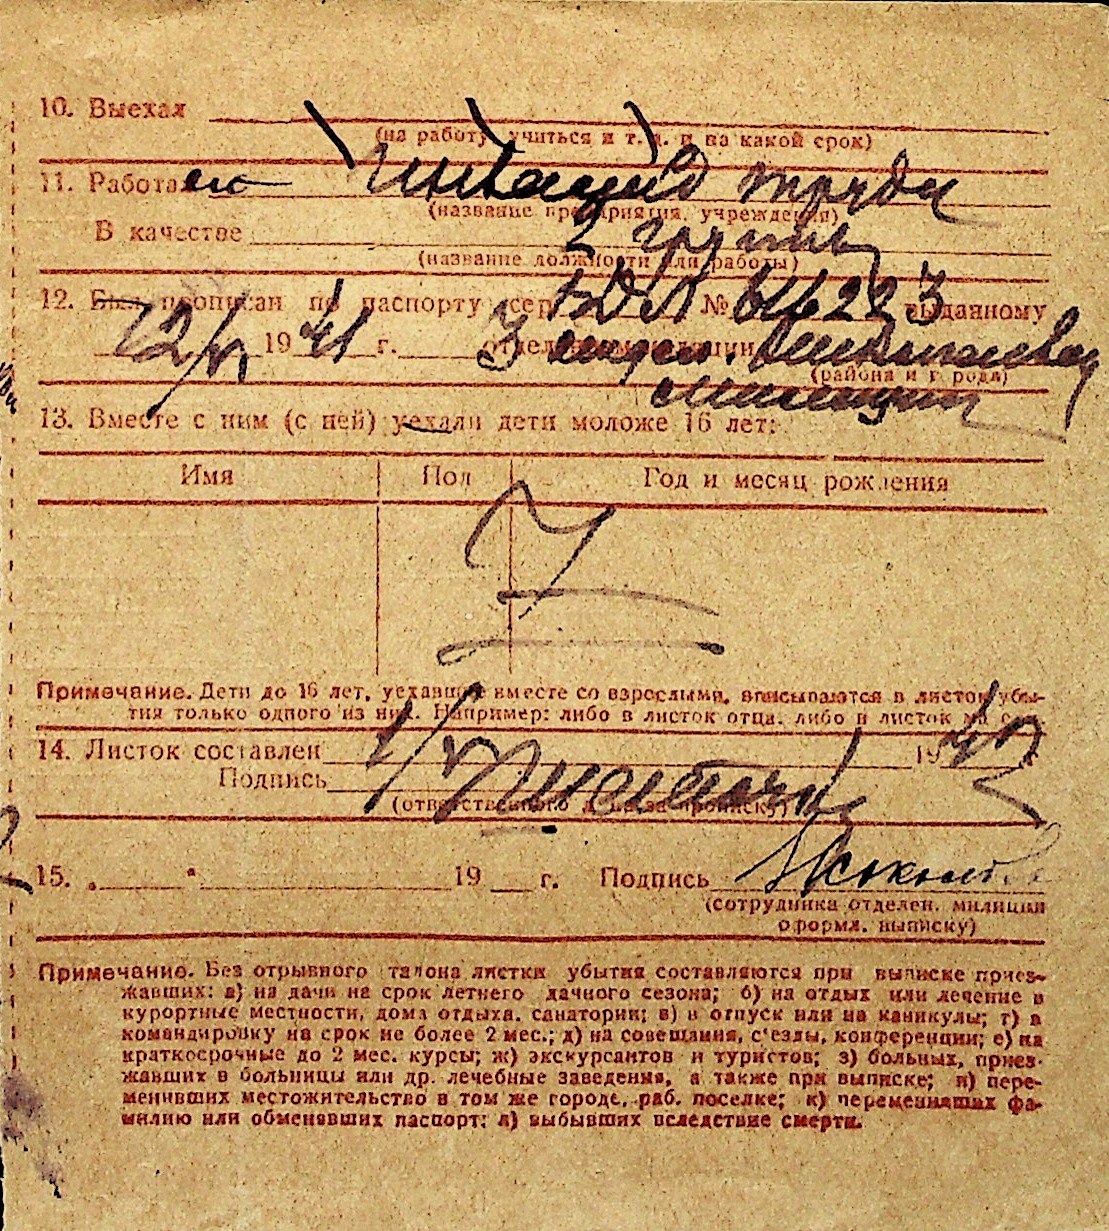 10. Выехал
(на работу, учиться и т. д. и на какой срок)
11. Работает Инвалид труда
(название предприятия, учреждения)
В качестве 2 группы
(название должности или работы)
12. Был прописан по паспорту сер. № 616223 выданному
12/VI 1941 г. 3 отделением милиции
(района и города)
милиции
13. Вместе с ним (с ней) уехали дети моложе 16 лет:
Имя Пол Год и месяц рождения
Примечание. Дети до 16 лет, уехавшие вместе со взрослыми, вписываются в листок убы-
тия только одного из них. Например: либо в листок отца, либо в листок матери.
14. Листок составлен 19
Подпись
(ответственного лица за прописку)
15. „ “ 19 г. Подпись
(сотрудника отделен. милиции
оформл. выписку)
Примечание. Без отрывного талона листки убытия составляются при выписке приез-
жавших: а) на дачи на срок летнего дачного сезона; б) на отдых или лечение в
курортные местности, дома отдыха, санатории; в) в отпуск или на каникулы; г) в
командировку на срок не более 2 мес.; д) на совещания, с'езды, конференции; е) на
краткосрочные до 2 мес. курсы; ж) экскурсантов и туристов; з) больных, приез-
жавших в больницы или др. лечебные заведения, а также при выписке; и) пере-
менивших местожительство в том же городе, раб. поселке; к) переменивших фа-
милию или обменявших паспорт; л) выбывших вследствие смерти.